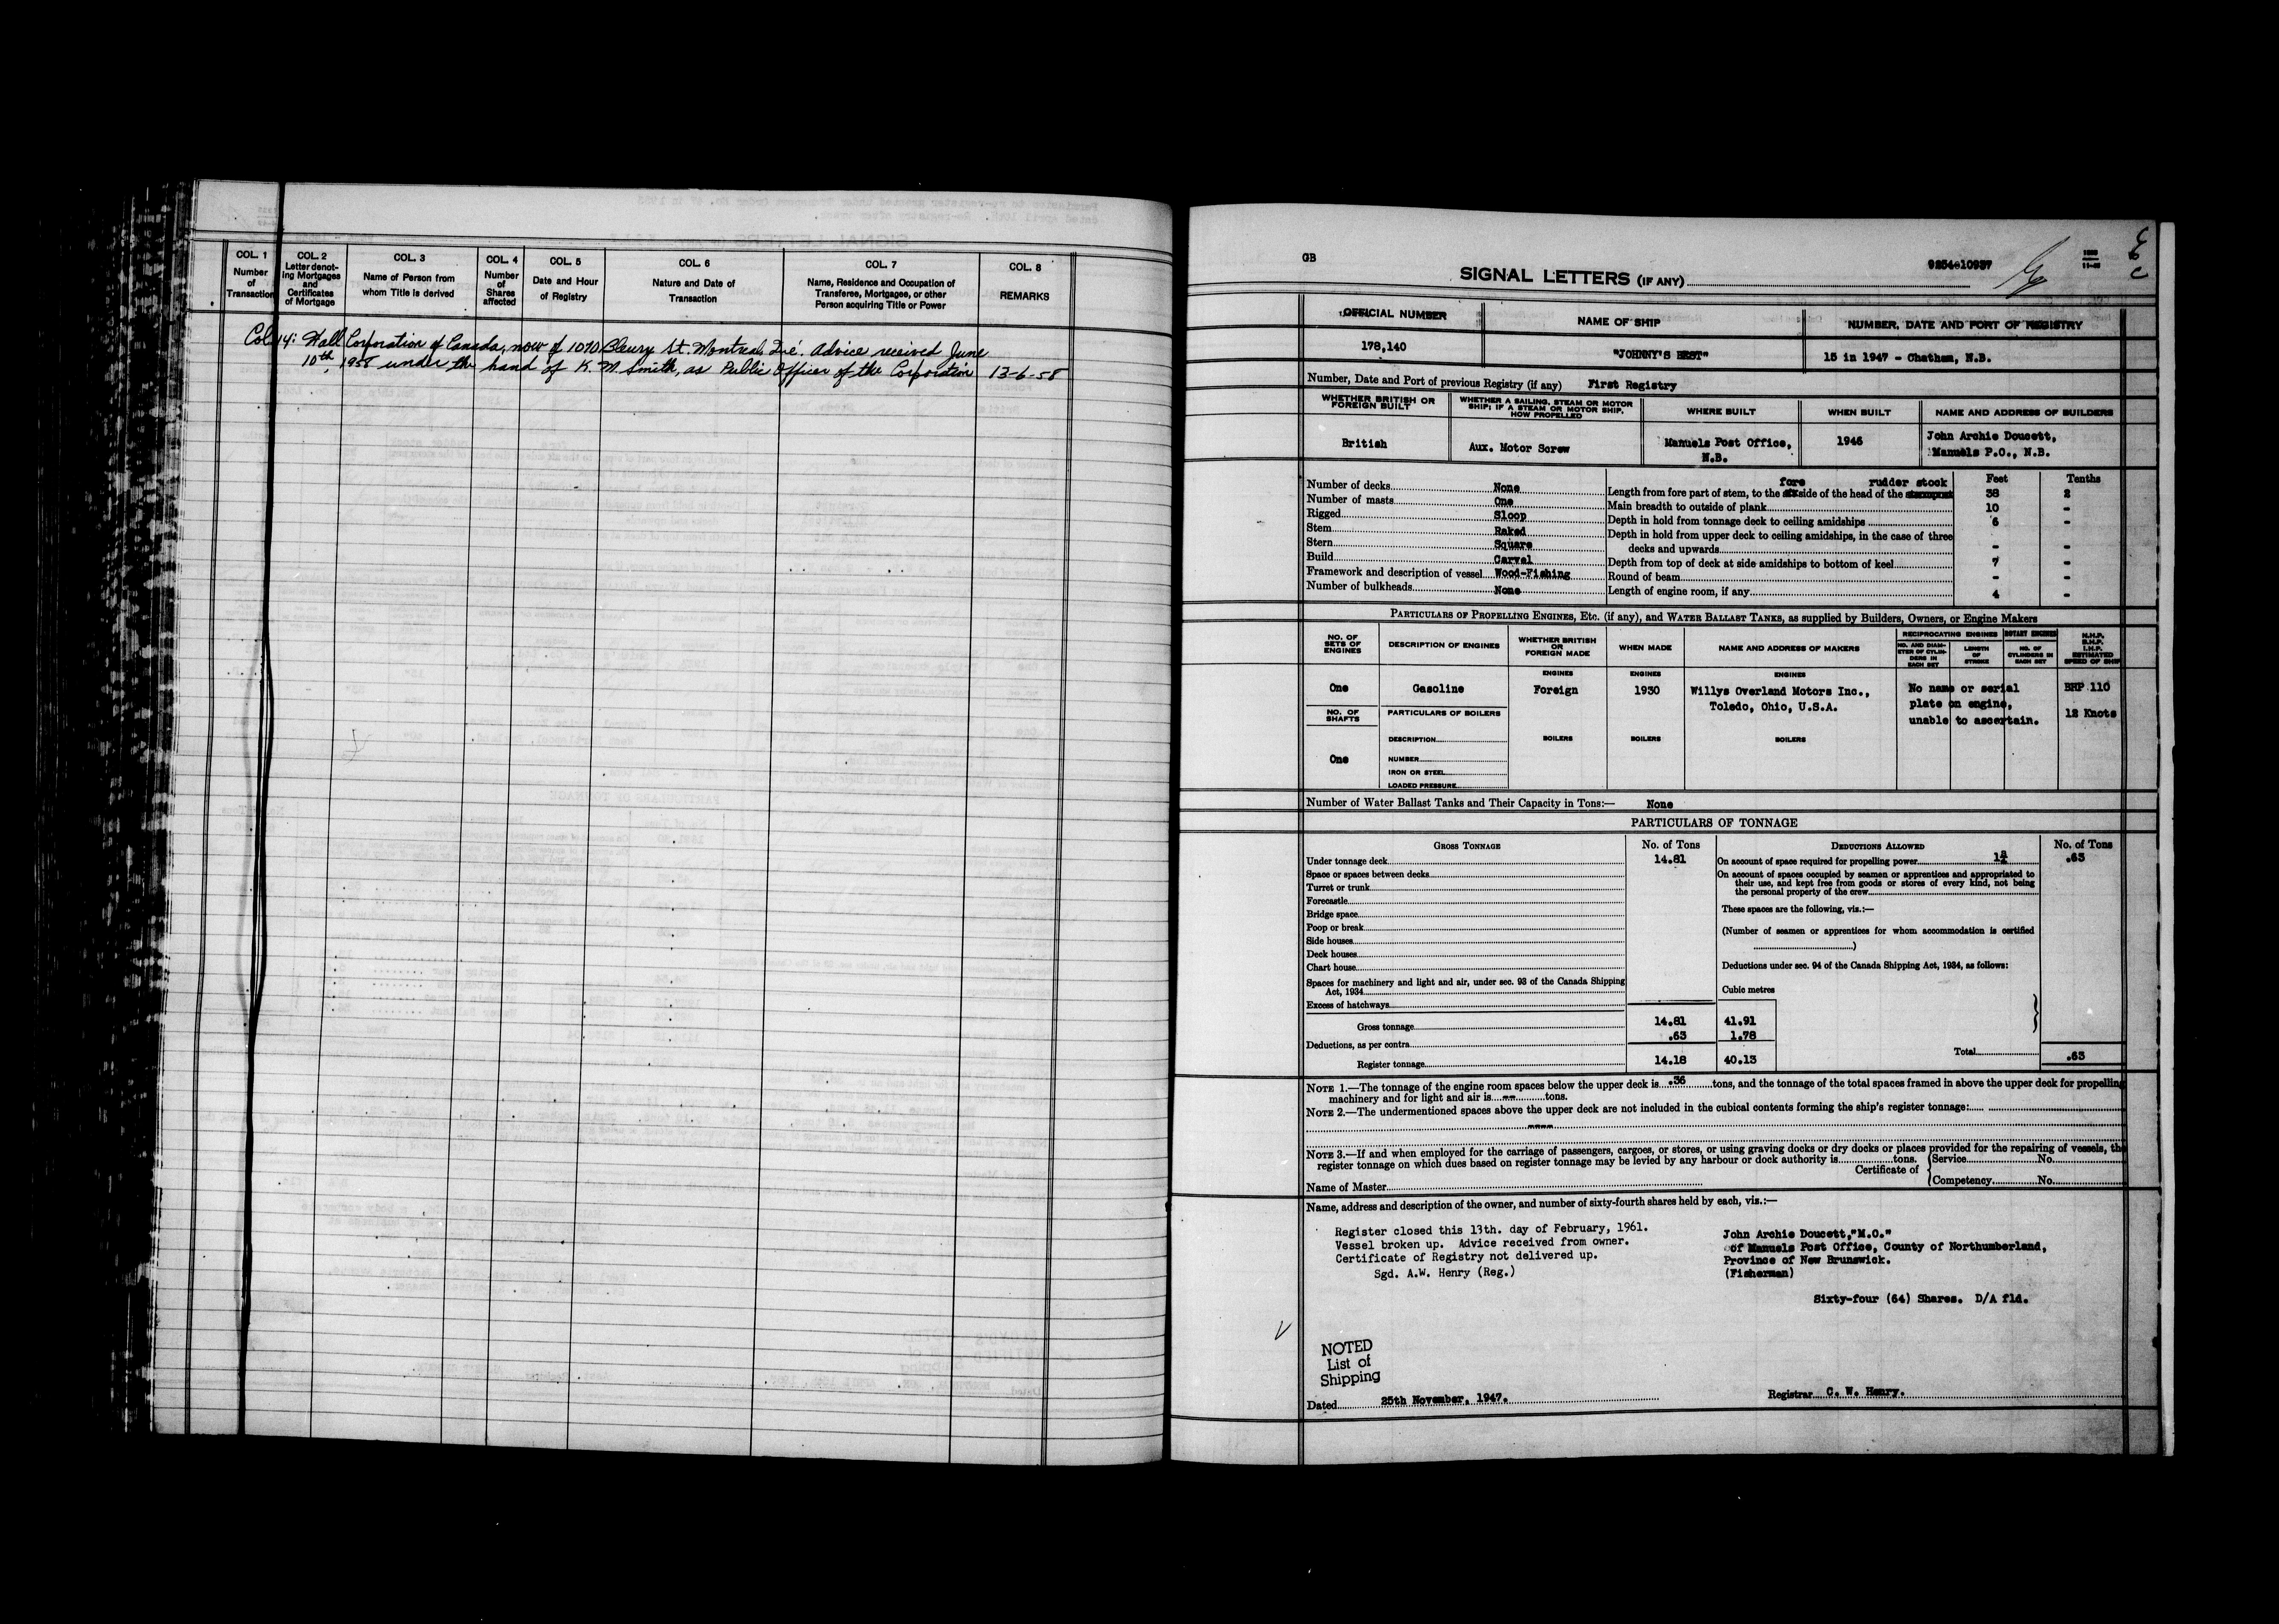 COL. 1 Number of Transaction
COL. 2 Letter denoting Mortgages and Certificates of Mortgage
COL. 3 Name of Person from whom Title is derived
COL. 4 Number of Shares affected
COL. 5 Date and Hour of Registry
COL. 6 Nature and Date of Transaction
COL. 7 Name, Residence and Occupation of Transferee, Mortgagee, or other Person acquiring Title or Power
COL. 8 REMARKS
Col 14: Hall Corporation of Canada, now of 1070 Bleury St. Montreal, Qué. Advice received June
10th, 1958 under the hand of K. M. Smith, as Public Officer of the Corporation 13-6-58
GB
9254-10937
SIGNAL LETTERS (IF ANY)
OFFICIAL NUMBER NAME OF SHIP NUMBER, DATE AND PORT OF REGISTRY
178,140 "JOHNNY'S BEST" 15 in 1947 - Chatham, N.B.
Number, Date and Port of previous Registry (if any) First Registry
WHETHER BRITISH OR FOREIGN BUILT
WHETHER A SAILING, STEAM OR MOTOR SHIP; IF A STEAM OR MOTOR SHIP, HOW PROPELLED
WHERE BUILT WHEN BUILT NAME AND ADDRESS OF BUILDERS
British Aux. Motor Screw Manuels Post Office, N.B. 1946 John Archie Doucett, Manuels P.O., N.B.
Feet Tenths
Number of decks None
Number of masts One
Rigged Sloop
Stem Raked
Stern Square
Build Carvel
Framework and description of vessel Wood-Fishing
Number of bulkheads None
fore rudder stock
Length from fore part of stem, to the side of the head of the 38 2
Main breadth to outside of plank 10 -
Depth in hold from tonnage deck to ceiling amidships 6 -
Depth in hold from upper deck to ceiling amidships, in the case of three
decks and upwards - -
Depth from top of deck at side amidships to bottom of keel 7 -
Round of beam - -
Length of engine room, if any 4 -
PARTICULARS OF PROPELLING ENGINES, ETC. (if any), and WATER BALLAST TANKS, as supplied by Builders, Owners, or Engine Makers
NO. OF SETS OF ENGINES
DESCRIPTION OF ENGINES
WHETHER BRITISH OR FOREIGN MADE
WHEN MADE
NAME AND ADDRESS OF MAKERS
RECIPROCATING ENGINES ROTARY ENGINES
NO. AND DIAMETER OF CYLINDERS IN EACH SET
LENGTH OF STROKE
NO. OF CYLINDERS IN EACH SET
N.H.P. B.H.P. I.H.P. ESTIMATED SPEED OF SHIP
ENGINES ENGINES ENGINES
One Gasoline Foreign 1930 Willys Overland Motors Inc., No name or serial BHP 110
Toledo, Ohio, U.S.A. plate on engine, 12 Knots
unable to ascertain.
NO. OF SHAFTS PARTICULARS OF BOILERS
DESCRIPTION BOILERS BOILERS BOILERS
One NUMBER
IRON OR STEEL
LOADED PRESSURE
Number of Water Ballast Tanks and Their Capacity in Tons:— None
PARTICULARS OF TONNAGE
GROSS TONNAGE No. of Tons DEDUCTIONS ALLOWED No. of Tons
Under tonnage deck 14.81
Space or spaces between decks
Turret or trunk
Forecastle
Bridge space
Poop or break
Side houses
Deck houses
Chart house
Spaces for machinery and light and air, under sec. 93 of the Canada Shipping
Act, 1934
Excess of hatchways
Gross tonnage 14.81 41.91
Deductions, as per contra .63 1.78
Register tonnage 14.18 40.13
On account of space required for propelling power .63
On account of spaces occupied by seamen or apprentices and appropriated to
their use, and kept free from goods or stores of every kind, not being
the personal property of the crew
These spaces are the following, viz.:—
(Number of seamen or apprentices for whom accommodation is certified
)
Deductions under sec. 94 of the Canada Shipping Act, 1934, as follows:
Cubic metres
Total .63
NOTE 1.—The tonnage of the engine room spaces below the upper deck is .36 tons, and the tonnage of the total spaces framed in above the upper deck for propelling
machinery and for light and air is -- tons.
NOTE 2.—The undermentioned spaces above the upper deck are not included in the cubical contents forming the ship's register tonnage:
----
NOTE 3.—If and when employed for the carriage of passengers, cargoes, or stores, or using graving docks or dry docks or places provided for the repairing of vessels, the
register tonnage on which dues based on register tonnage may be levied by any harbour or dock authority is tons.
Certificate of Service No.
Competency No.
Name of Master
Name, address and description of the owner, and number of sixty-fourth shares held by each, viz.:—
Register closed this 13th. day of February, 1961.
Vessel broken up. Advice received from owner.
Certificate of Registry not delivered up.
Sgd. A.W. Henry (Reg.)
John Archie Doucett, "M.O."
of Manuels Post Office, County of Northumberland,
Province of New Brunswick.
(Fisherman)
Sixty-four (64) Shares. D/A fld.
NOTED
List of
Shipping
Dated 25th November, 1947.
Registrar C. W. Henry.